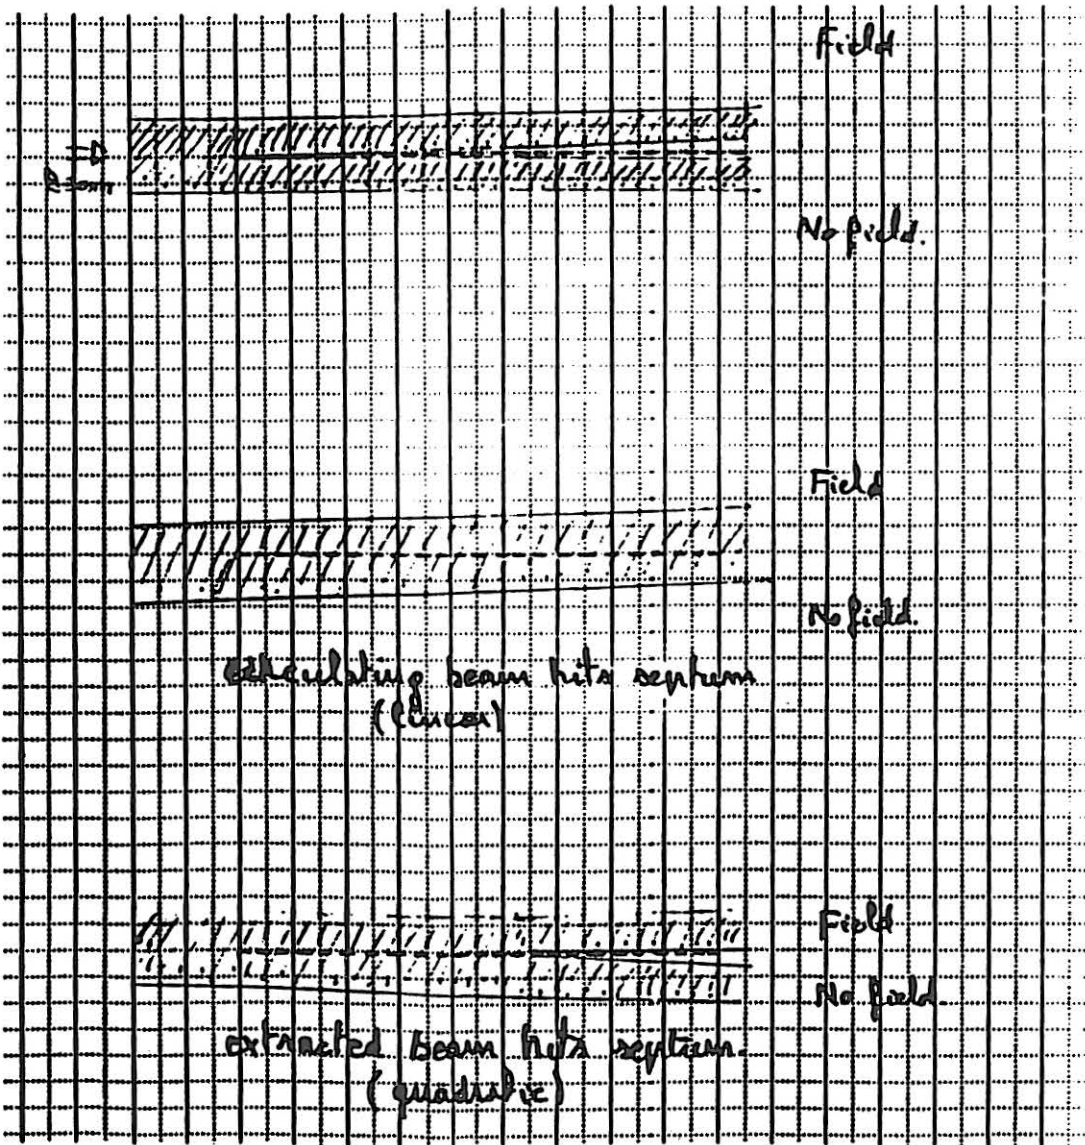 Field
Beam
No field.
Field
No field.
circulating beam hits septum
(linear)
Field
No field.
extracted beam hits septum.
(quadratic)